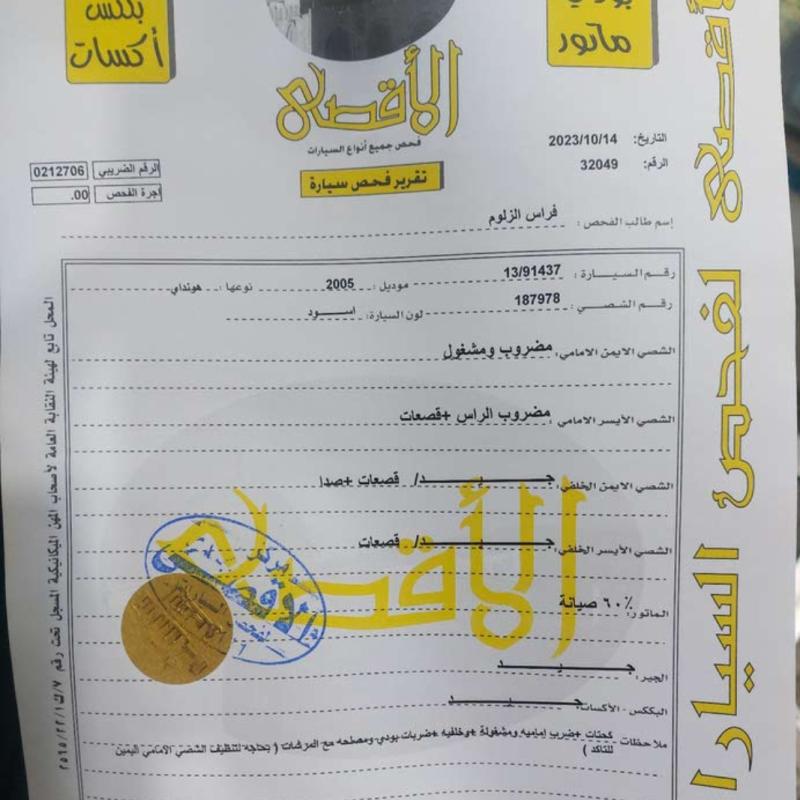 بككس
أكسات
بودي
ماتور
الأقصى
فحص جميع أنواع السيارات
تقرير فحص سيارة
التاريخ: 2023/10/14
الرقم: 32049
الرقم الضريبي 0212706
اجرة الفحص 00.
إسم طالب الفحص: فراس الزلوم
رقم السيارة: 13/91437 موديل: 2005 نوعها: هونداي
رقم الشصي: 187978 لون السيارة: اسود
الشصي الايمن الامامي: مضروب ومشغول
الشصي الأيسر الامامي: مضروب الراس +قصعات
الشصي الايمن الخلفي: جيد/ قصعات +صدا
الشصي الأيسر الخلفي: جيد/ قصعات
الماتور: ٦٠٪ صيانة
الجير: جيد
البككس - الأكسات: جيد
ملاحظات كحتات +ضرب امامية ومشغولة +وخلفيه +ضربات بودي ومصلحه مع المرشات ( بحاجه لتنظيف الشصي الامامي اليمين
للتاكد )
الأقصى
مركز
الاقصى
الأقصى لفحص السيارا
المحل تابع لهيئة النقابة العامة لأصحاب المهن الميكانيكية المسجل تحت رقم